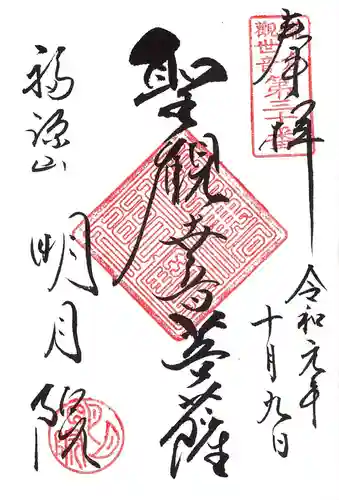 奉拝
観世音第三十番
令和元年
十月九日
聖観世音菩薩
福源山
明月院